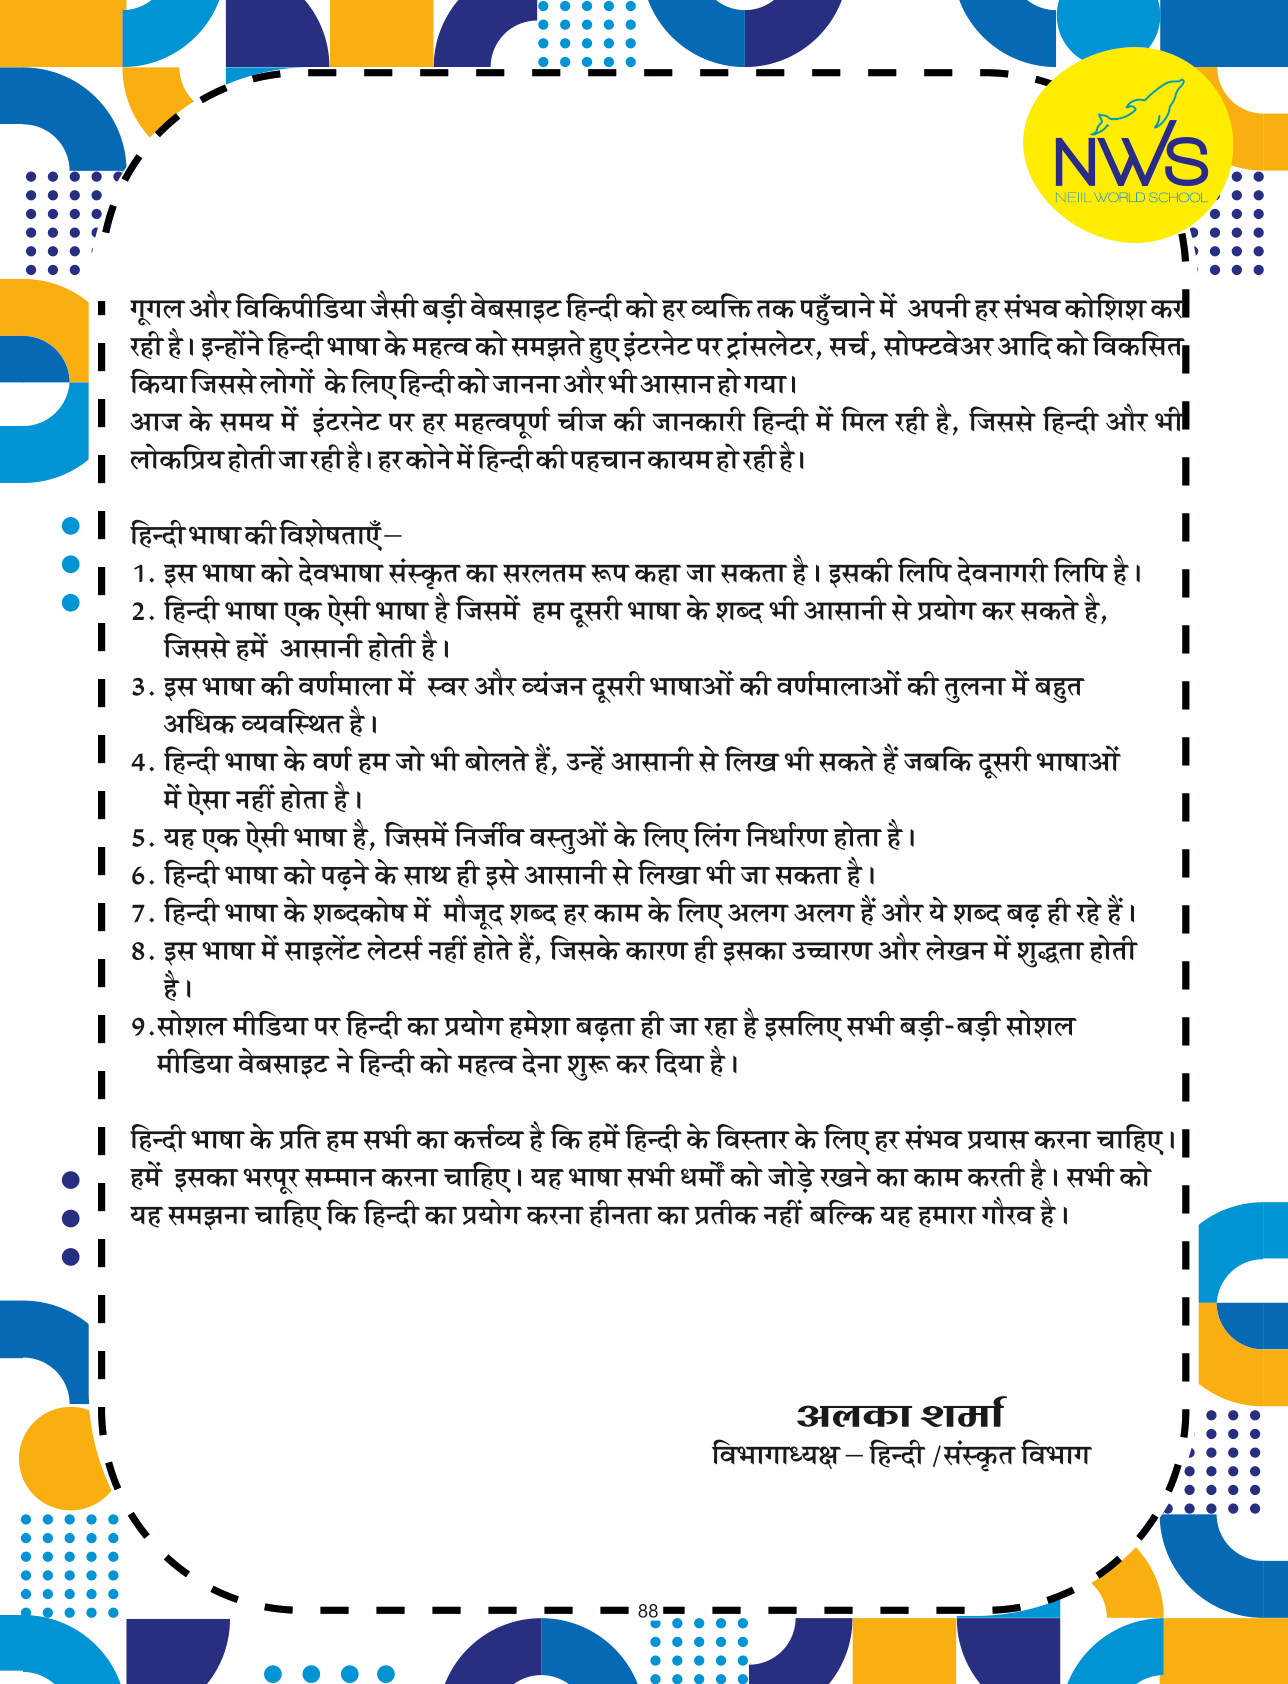 NWS
NEIIL WORLD SCHOOL
गूगल और विकिपीडिया जैसी बड़ी वेबसाइट हिन्दी को हर व्यक्ति तक पहुँचाने में अपनी हर संभव कोशिश कर
रही है। इन्होंने हिन्दी भाषा के महत्व को समझते हुए इंटरनेट पर ट्रांसलेटर, सर्च, सोफ्टवेअर आदि को विकसित
किया जिससे लोगों के लिए हिन्दी को जानना और भी आसान हो गया।
आज के समय में इंटरनेट पर हर महत्वपूर्ण चीज की जानकारी हिन्दी में मिल रही है, जिससे हिन्दी और भी
लोकप्रिय होती जा रही है। हर कोने में हिन्दी की पहचान कायम हो रही है।
हिन्दी भाषा की विशेषताएँ–
1. इस भाषा को देवभाषा संस्कृत का सरलतम रूप कहा जा सकता है। इसकी लिपि देवनागरी लिपि है।
2. हिन्दी भाषा एक ऐसी भाषा है जिसमें हम दूसरी भाषा के शब्द भी आसानी से प्रयोग कर सकते है,
जिससे हमें आसानी होती है।
3. इस भाषा की वर्णमाला में स्वर और व्यंजन दूसरी भाषाओं की वर्णमालाओं की तुलना में बहुत
अधिक व्यवस्थित है।
4. हिन्दी भाषा के वर्ण हम जो भी बोलते हैं, उन्हें आसानी से लिख भी सकते हैं जबकि दूसरी भाषाओं
में ऐसा नहीं होता है।
5. यह एक ऐसी भाषा है, जिसमें निर्जीव वस्तुओं के लिए लिंग निर्धारण होता है।
6. हिन्दी भाषा को पढ़ने के साथ ही इसे आसानी से लिखा भी जा सकता है।
7. हिन्दी भाषा के शब्दकोष में मौजूद शब्द हर काम के लिए अलग अलग हैं और ये शब्द बढ़ ही रहे हैं।
8. इस भाषा में साइलेंट लेटर्स नहीं होते हैं, जिसके कारण ही इसका उच्चारण और लेखन में शुद्धता होती
है।
9.सोशल मीडिया पर हिन्दी का प्रयोग हमेशा बढ़ता ही जा रहा है इसलिए सभी बड़ी-बड़ी सोशल
मीडिया वेबसाइट ने हिन्दी को महत्व देना शुरू कर दिया है।
हिन्दी भाषा के प्रति हम सभी का कर्त्तव्य है कि हमें हिन्दी के विस्तार के लिए हर संभव प्रयास करना चाहिए।
हमें इसका भरपूर सम्मान करना चाहिए। यह भाषा सभी धर्मों को जोड़े रखने का काम करती है। सभी को
यह समझना चाहिए कि हिन्दी का प्रयोग करना हीनता का प्रतीक नहीं बल्कि यह हमारा गौरव है।
अलका शर्मा
विभागाध्यक्ष – हिन्दी /संस्कृत विभाग
88